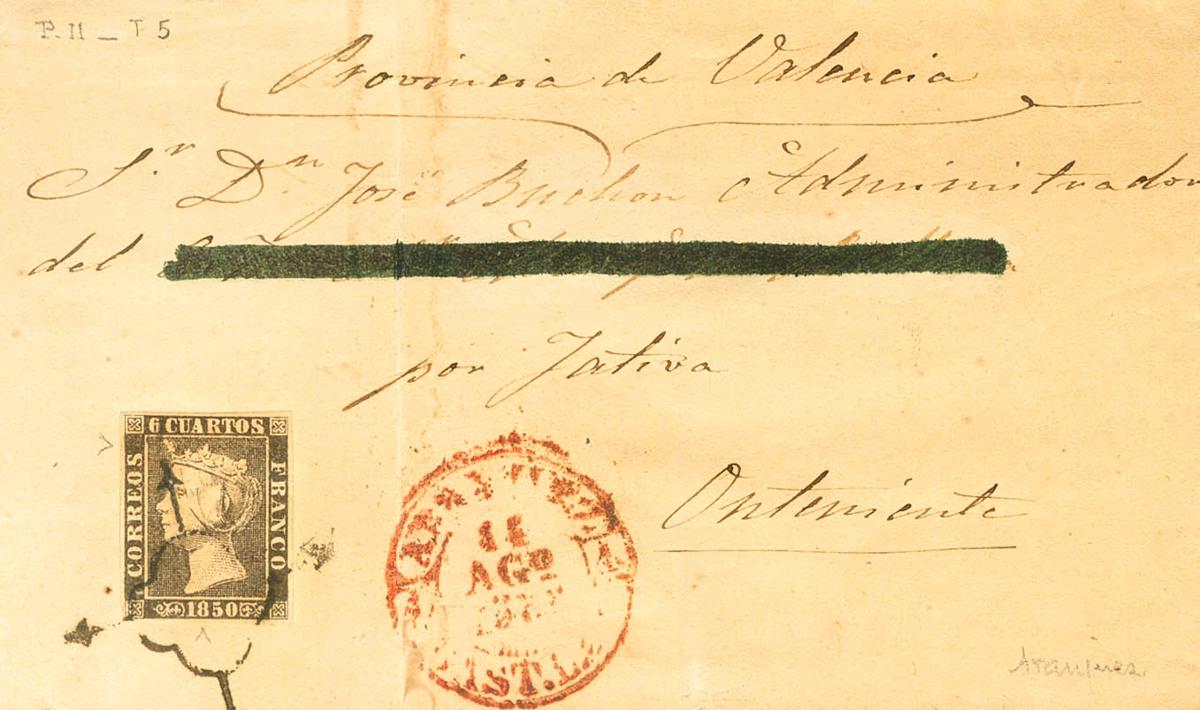 P. II _ T 5
Provincia de Valencia
S.r D.n José Buchon Administrador
del
por Jativa
6 CUARTOS
CORREOS
FRANCO
1850
11
AGO
Onteniente
Aranjuez